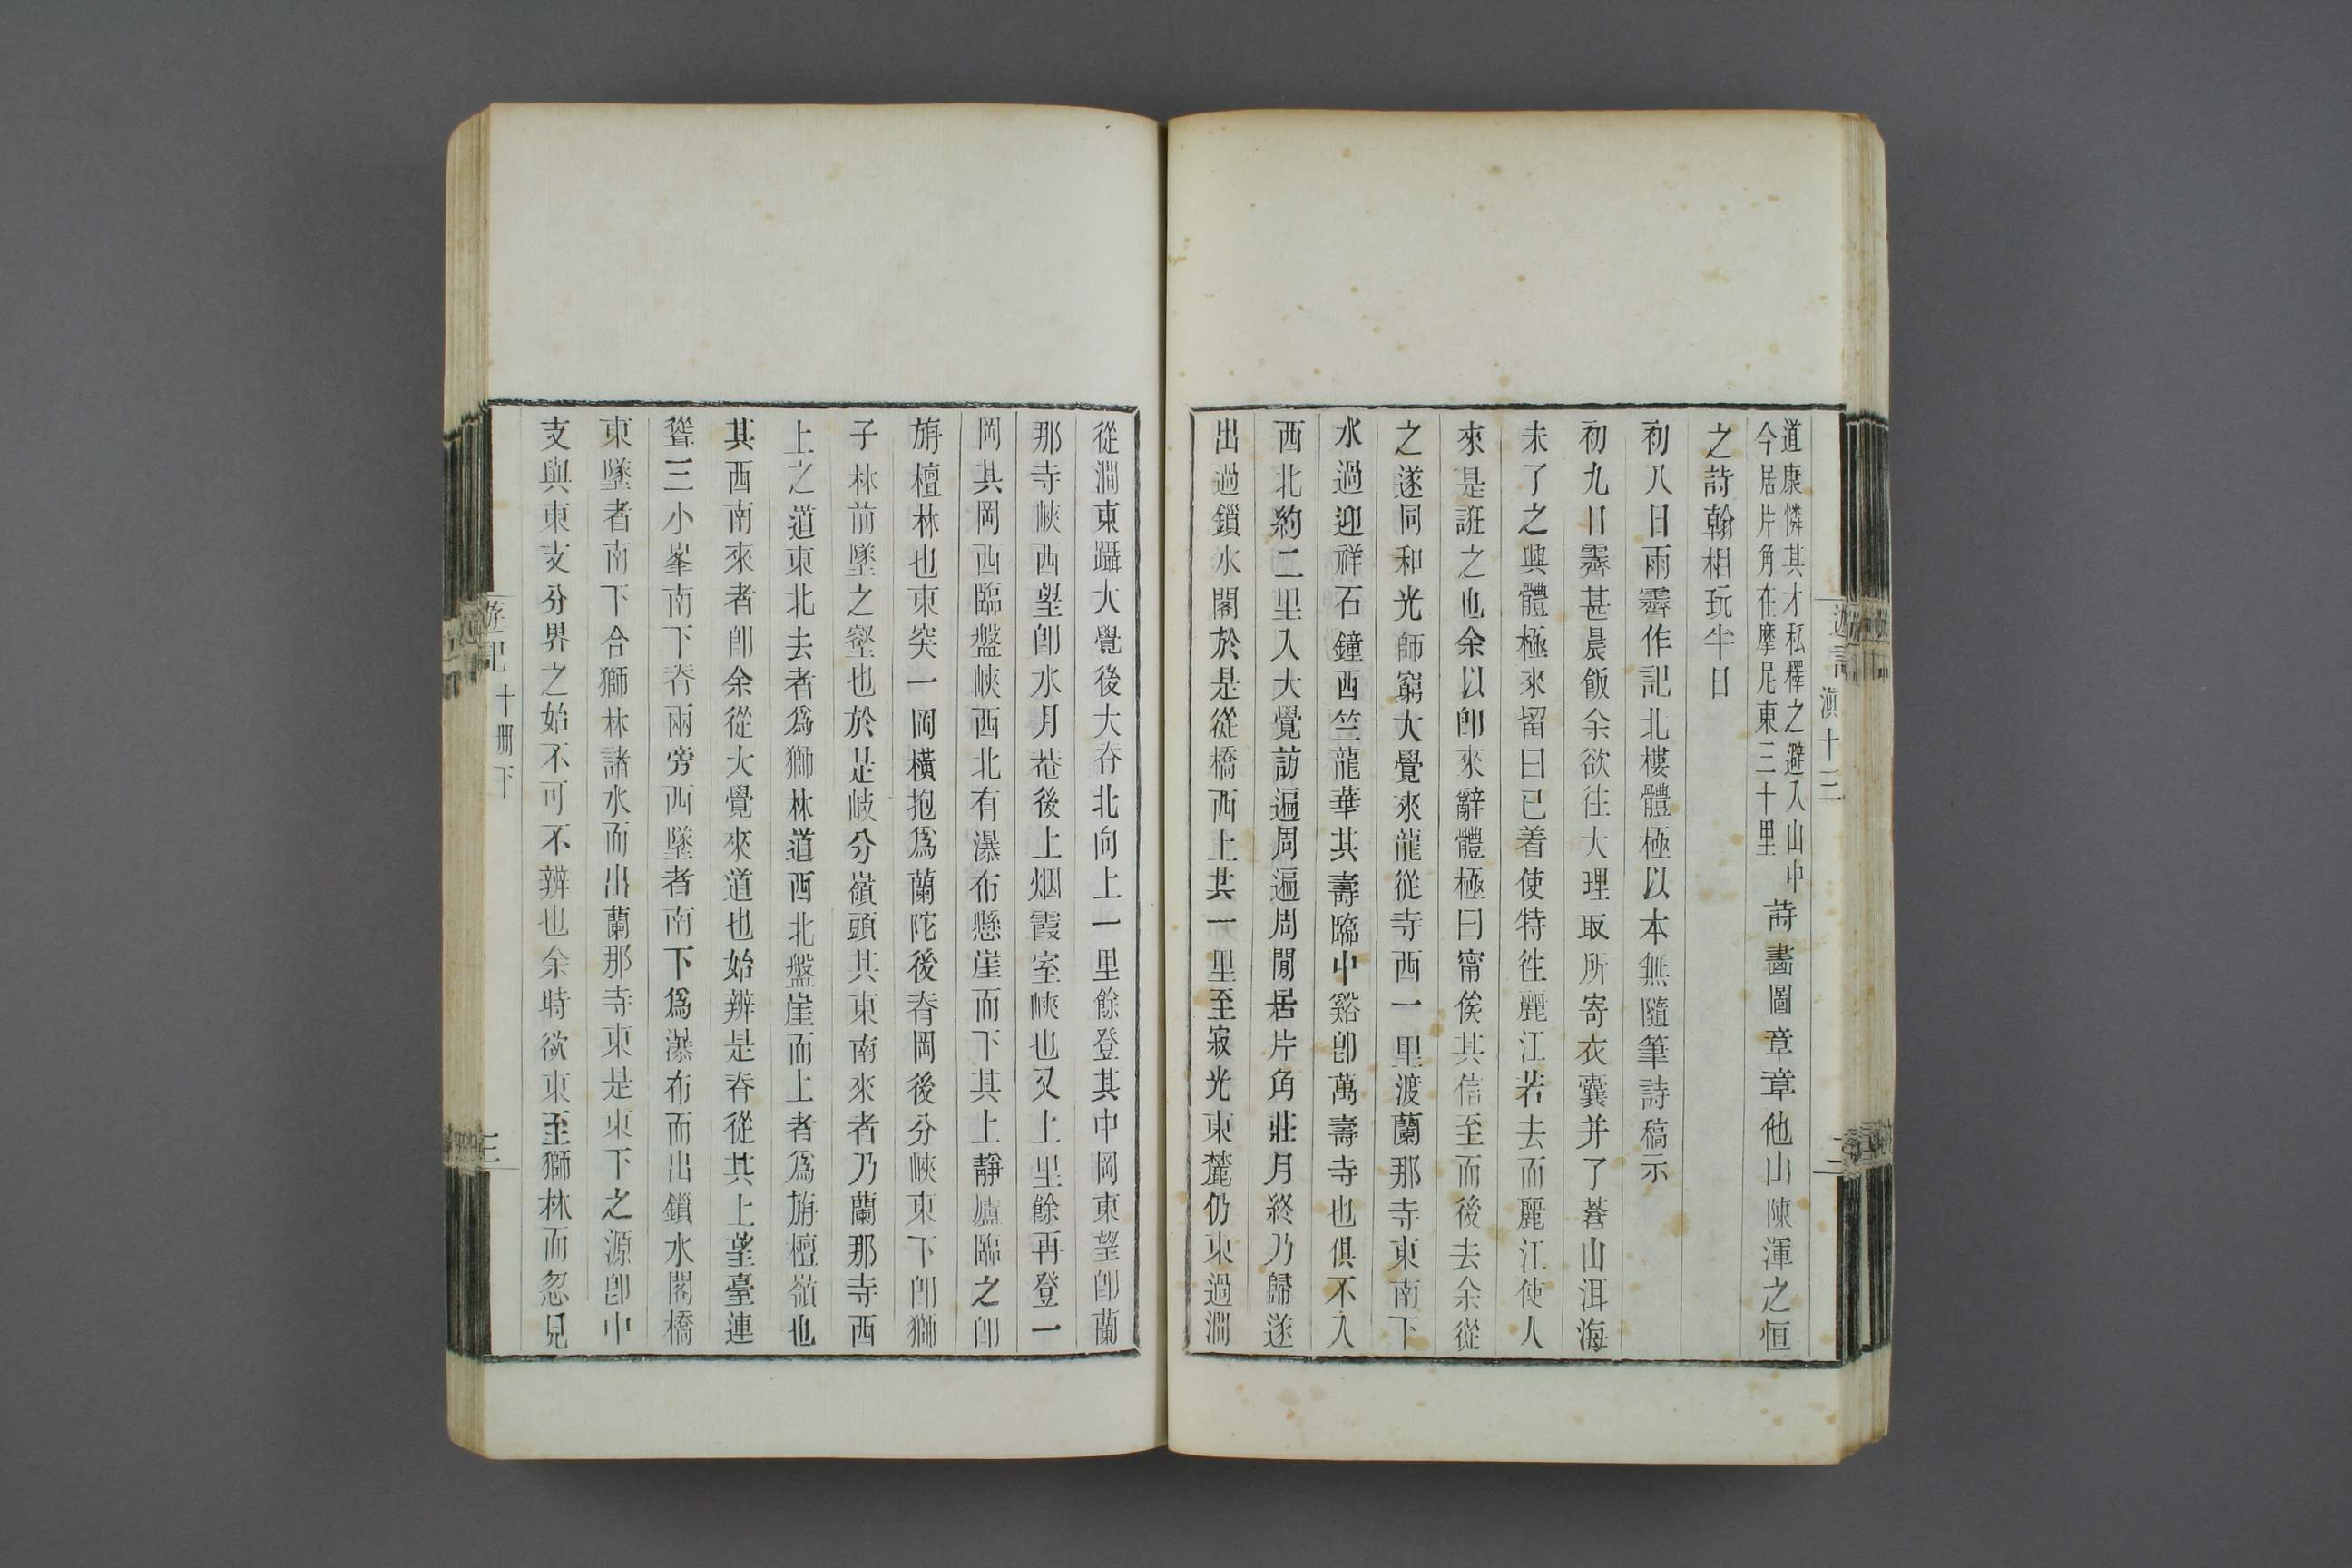 遊記 滇十三 二
道康憐其才私釋之避入山中
今居片角在摩尼東三十里
詩畫圖章章他山陳渾之恒
之詩翰相玩半日
初八日雨霽作記北樓體極以本無隨筆詩稿示
初九日霽甚晨飯余欲往大理取所寄衣囊并了蒼山洱海
未了之興體極來留曰已着使特往麗江若去而麗江使人
來是誑之也余以卽來辭體極曰甯俟其信至而後去余從
之遂同和光師窮大覺來龍從寺西一里渡蘭那寺東南下
水過迎祥石鐘西竺龍華其壽臨中谿卽萬壽寺也俱不入
西北約二里入大覺訪遍周遍周閒居片角莊月終乃歸遂
出過鎖水閣於是從橋西上共一里至寂光東麓仍東過澗
從澗東躡大覺後大脊北向上一里餘登其中岡東望卽蘭
那寺峽西望卽水月菴後上烟霞室峽也又上里餘再登一
岡其岡西臨盤峽西北有瀑布懸崖而下其上靜廬臨之卽
旃檀林也東突一岡橫抱爲蘭陀後脊岡後分峽東下卽獅
子林前墜之壑也於是岐分嶺頭其東南來者乃蘭那寺西
上之道東北去者爲獅林道西北盤崖而上者爲旃檀嶺也
其西南來者卽余從大覺來道也始辨是脊從其上望臺連
聳三小峯南下脊兩旁西墜者南下爲瀑布而出鎖水閣橋
東墜者南下合獅林諸水而出蘭那寺東是東下之源卽中
支與東支分界之始不可不辨也余時欲東至獅林而忽見
遊記 十册下 三